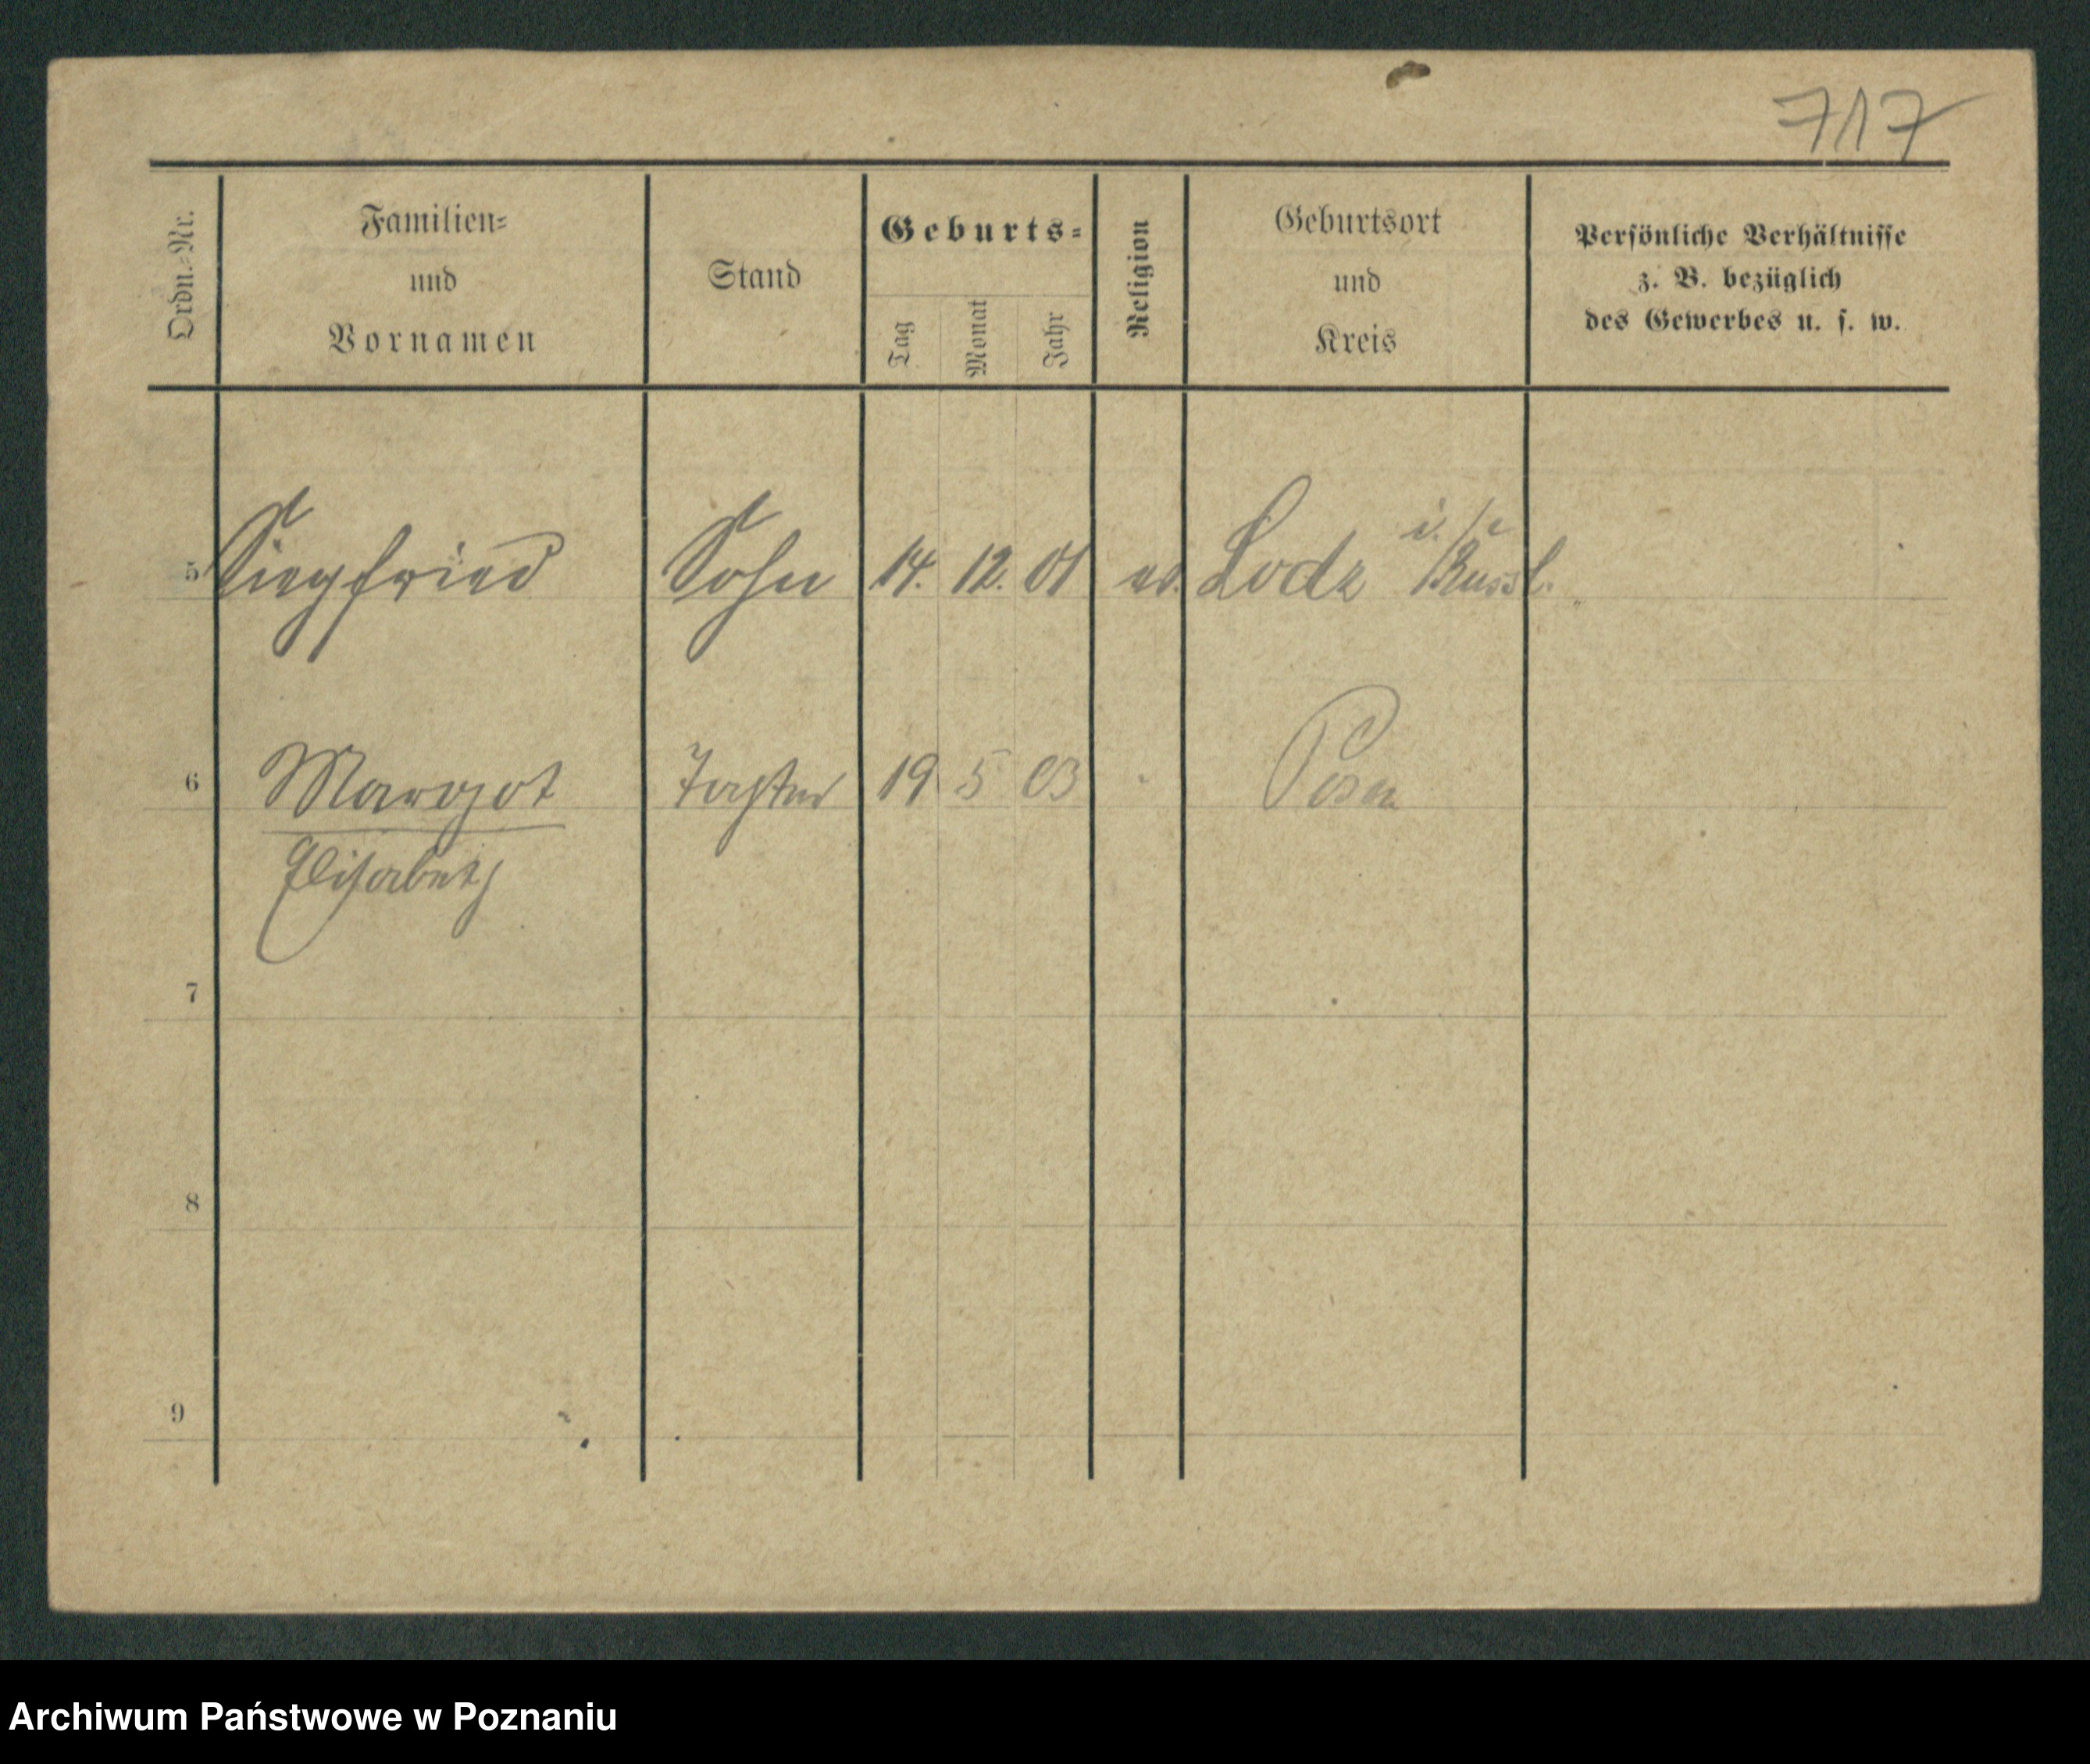 717
Ordn.-Nr. Familien- und Vornamen Stand Geburts- Tag Monat Jahr Religion Geburtsort und Kreis Persönliche Verhältnisse z. B. bezüglich des Gewerbes u. s. w.
5 Siegfried Sohn 14. 12. 01 ev. Lodz i./ Russl.
6 Margot Tochter 19 5 03 Posen
Elisabeth
7
8
9
Archiwum Państwowe w Poznaniu